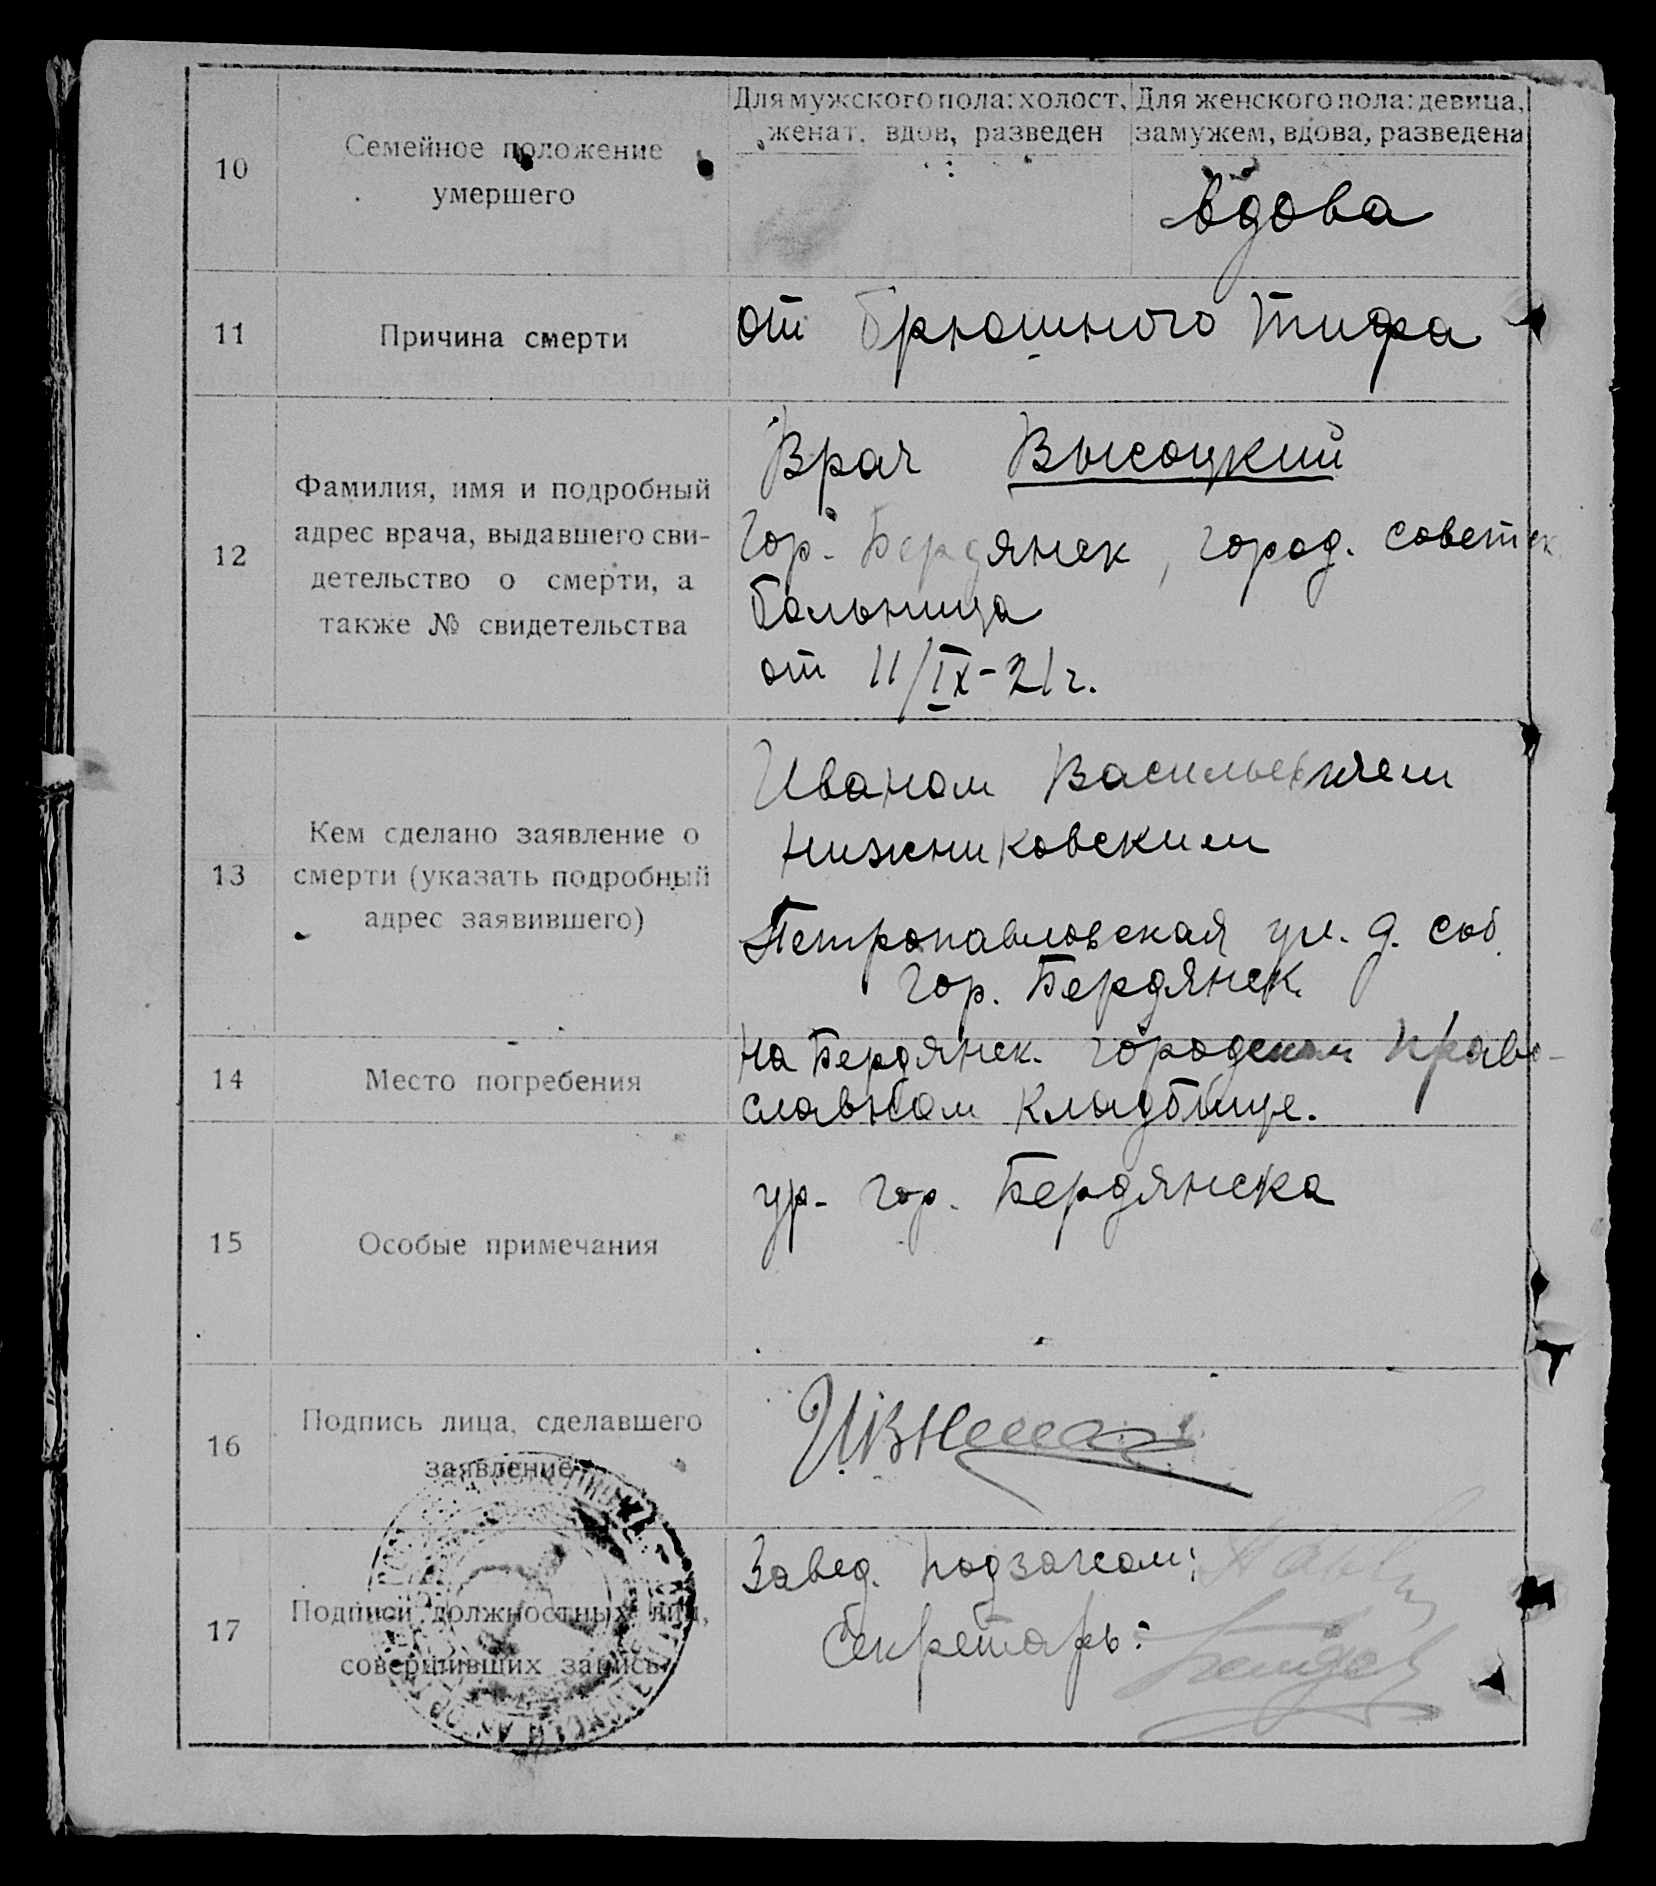 10
Семейное положение
умершего
Для мужского пола: холост,
женат, вдов, разведен
Для женского пола: девица,
замужем, вдова, разведена
вдова
11
Причина смерти
от брюшного тифа
12
Фамилия, имя и подробный
адрес врача, выдавшего сви-
детельство о смерти, а
также № свидетельства
Врач Высоцкий
Гор. Бердянск, город. советск.
больница
от 11/IX-21 г.
13
Кем сделано заявление о
смерти (указать подробный
адрес заявившего)
Иваном Васильевичем
Нижниковским
Петропавловская ул. д. соб.
гор. Бердянск.
14
Место погребения
на Бердянск. городском право-
славном кладбище.
15
Особые примечания
ур. гор. Бердянска
16
Подпись лица, сделавшего
заявление
17
Подписи должностных лиц,
совершивших запись
Завед. подзагсом:
Секретарь: